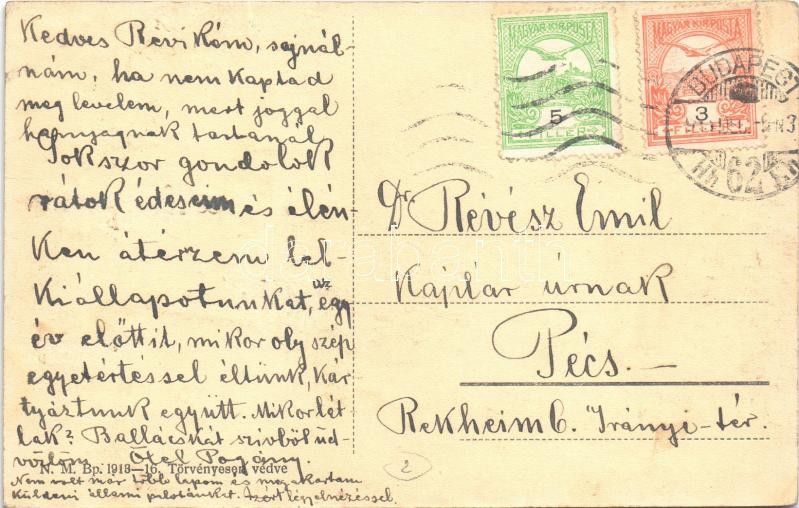 Kedves Révikém, sajnál-
nám, ha nem kaptad
meg levelem, mert joggal
hanyagnak tartanál
Sokszor gondolok
rátok édeseim és élén-
ken átérzem lel-
kiállapotunkat, az egy
év előttit, mikor oly szép
egyetértéssel éltünk, kár-
tyáztunk együtt. Mikor lát-
lak? Ballácskát szívből üd-
vözlöm Ölel Pogány.
N. M. Bp. 1913—16. Törvényesen védve
Nem volt már több lapom és meg akartam
küldeni állami pilótánket. Azért légy elnézéssel.
MAGYAR KIR. POSTA
5
FILLER
MAGYAR KIR. POSTA
3
FILLER
BUDAPEST
62
Dr. Révész Emil
Káplár úrnak
Pécs.—
Rekheim 6. Irányi-tér.
2
darabanth